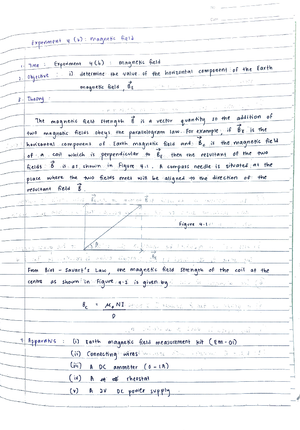 Experiment 4(b): magnetic field
1. Title : Experiment 4(b) : magnetic field
2. Objective : i) determine the value of the horizontal component of the Earth
magnetic field, B_E
3. Theory :
The magnetic field strength B is a vector quantity so the addition of
two magnetic fields obeys the parallelogram law. For example, if B_E is the
horizontal component of Earth magnetic field and B_c is the magnetic field
of a coil which is perpendicular to B_E then the resultant of the two
fields B is as shown in Figure 4.1. A compass needle is situated at the
place where the two fields meet will be aligned to the direction of the
resultant field B.
Figure 4.1
From Biot - Savart's Law, the magnetic field strength of the coil at the
centre as shown in Figure 4.2 is given by
B_c = μ₀NI
D
4. Apparatus : (i) Earth magnetic field measurement kit (EM-01)
(ii) Connecting wires
(iii) A DC ammeter (0-1A)
(iv) A rheostat
(v) A 2V DC power supply